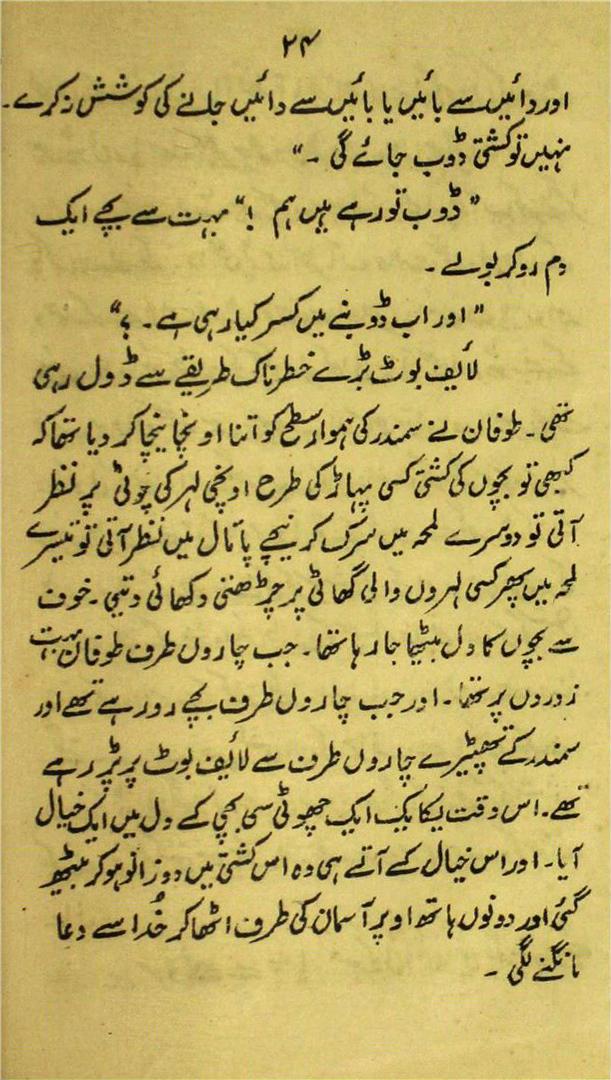 ۲۴
اور دائیں سے بائیں یا بائیں سے دائیں جانے کی کوشش نہ کرے۔
نہیں تو کشتی ڈوب جائے گی ۔"
"ڈوب تو رہے ہیں ہم !" بہت سے بچے ایک
دم رو کر بولے ۔
"اور اب ڈوبنے میں کسر کیا رہی ہے ۔ ؟"
لائیف بوٹ بڑے خطرناک طریقے سے ڈول رہی
تھی ۔ طوفان نے سمندر کی ہموار سطح کو اتنا اونچا نیچا کر دیا تھا کہ
کبھی تو بچوں کی کشتی کسی پہاڑ کی طرح اونچی لہر کی چوٹی پر نظر
آتی تو دوسرے لمحہ میں سرک کر نیچے پاتال میں نظر آتی تو تیسرے
لمحہ میں پھر کسی لہروں والی گھاٹی پر چڑھتی دکھائی دیتی ۔ خوف
سے بچوں کا دل بیٹھا جا رہا تھا ۔ جب چاروں طرف طوفان بہت
زوروں پر تھا ۔ اور جب چاروں طرف بچے رو رہے تھے اور
سمندر کے تھپیڑے چاروں طرف سے لائیف بوٹ پر پڑ رہے
تھے۔ اس وقت یکایک ایک چھوٹی سی بچی کے دل میں ایک خیال
آیا ۔ اور اس خیال کے آتے ہی وہ اس کشتی میں دوزانو ہو کر بیٹھ
گئی اور دونوں ہاتھ اوپر آسمان کی طرف اٹھا کر خُدا سے دعا
مانگنے لگی ۔